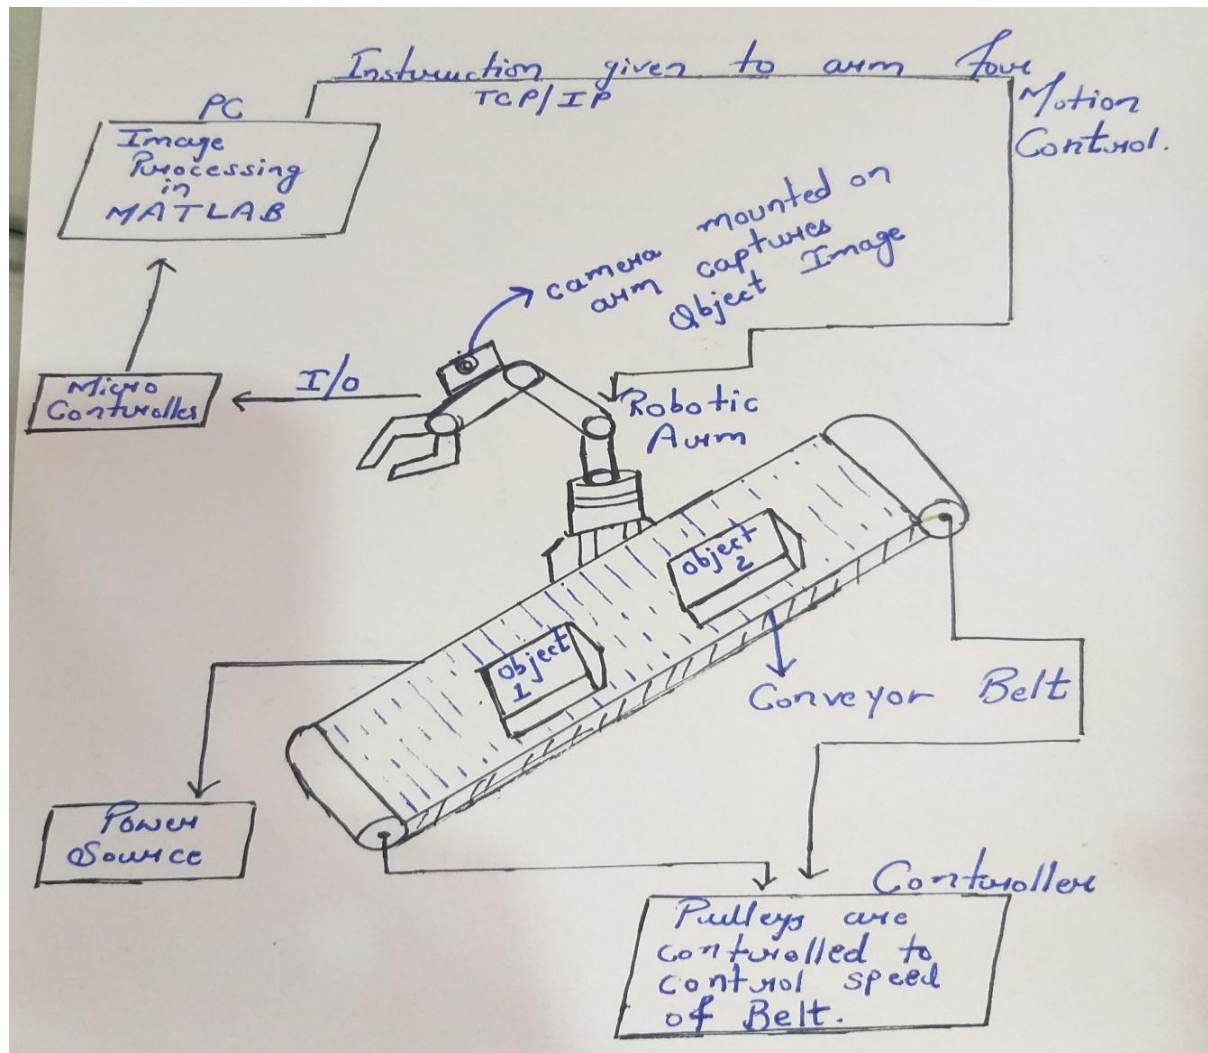 Instruction given to arm for
TCP/IP
Motion
Control.
PC
Image
Processing
in
MATLAB
camera mounted on
arm captures
Object Image
I/O
Micro
Controller
Robotic
Arm
Object
2
Object
1
Conveyor Belt
Power
Source
Controller
Pulleys are
controlled to
control speed
of Belt.